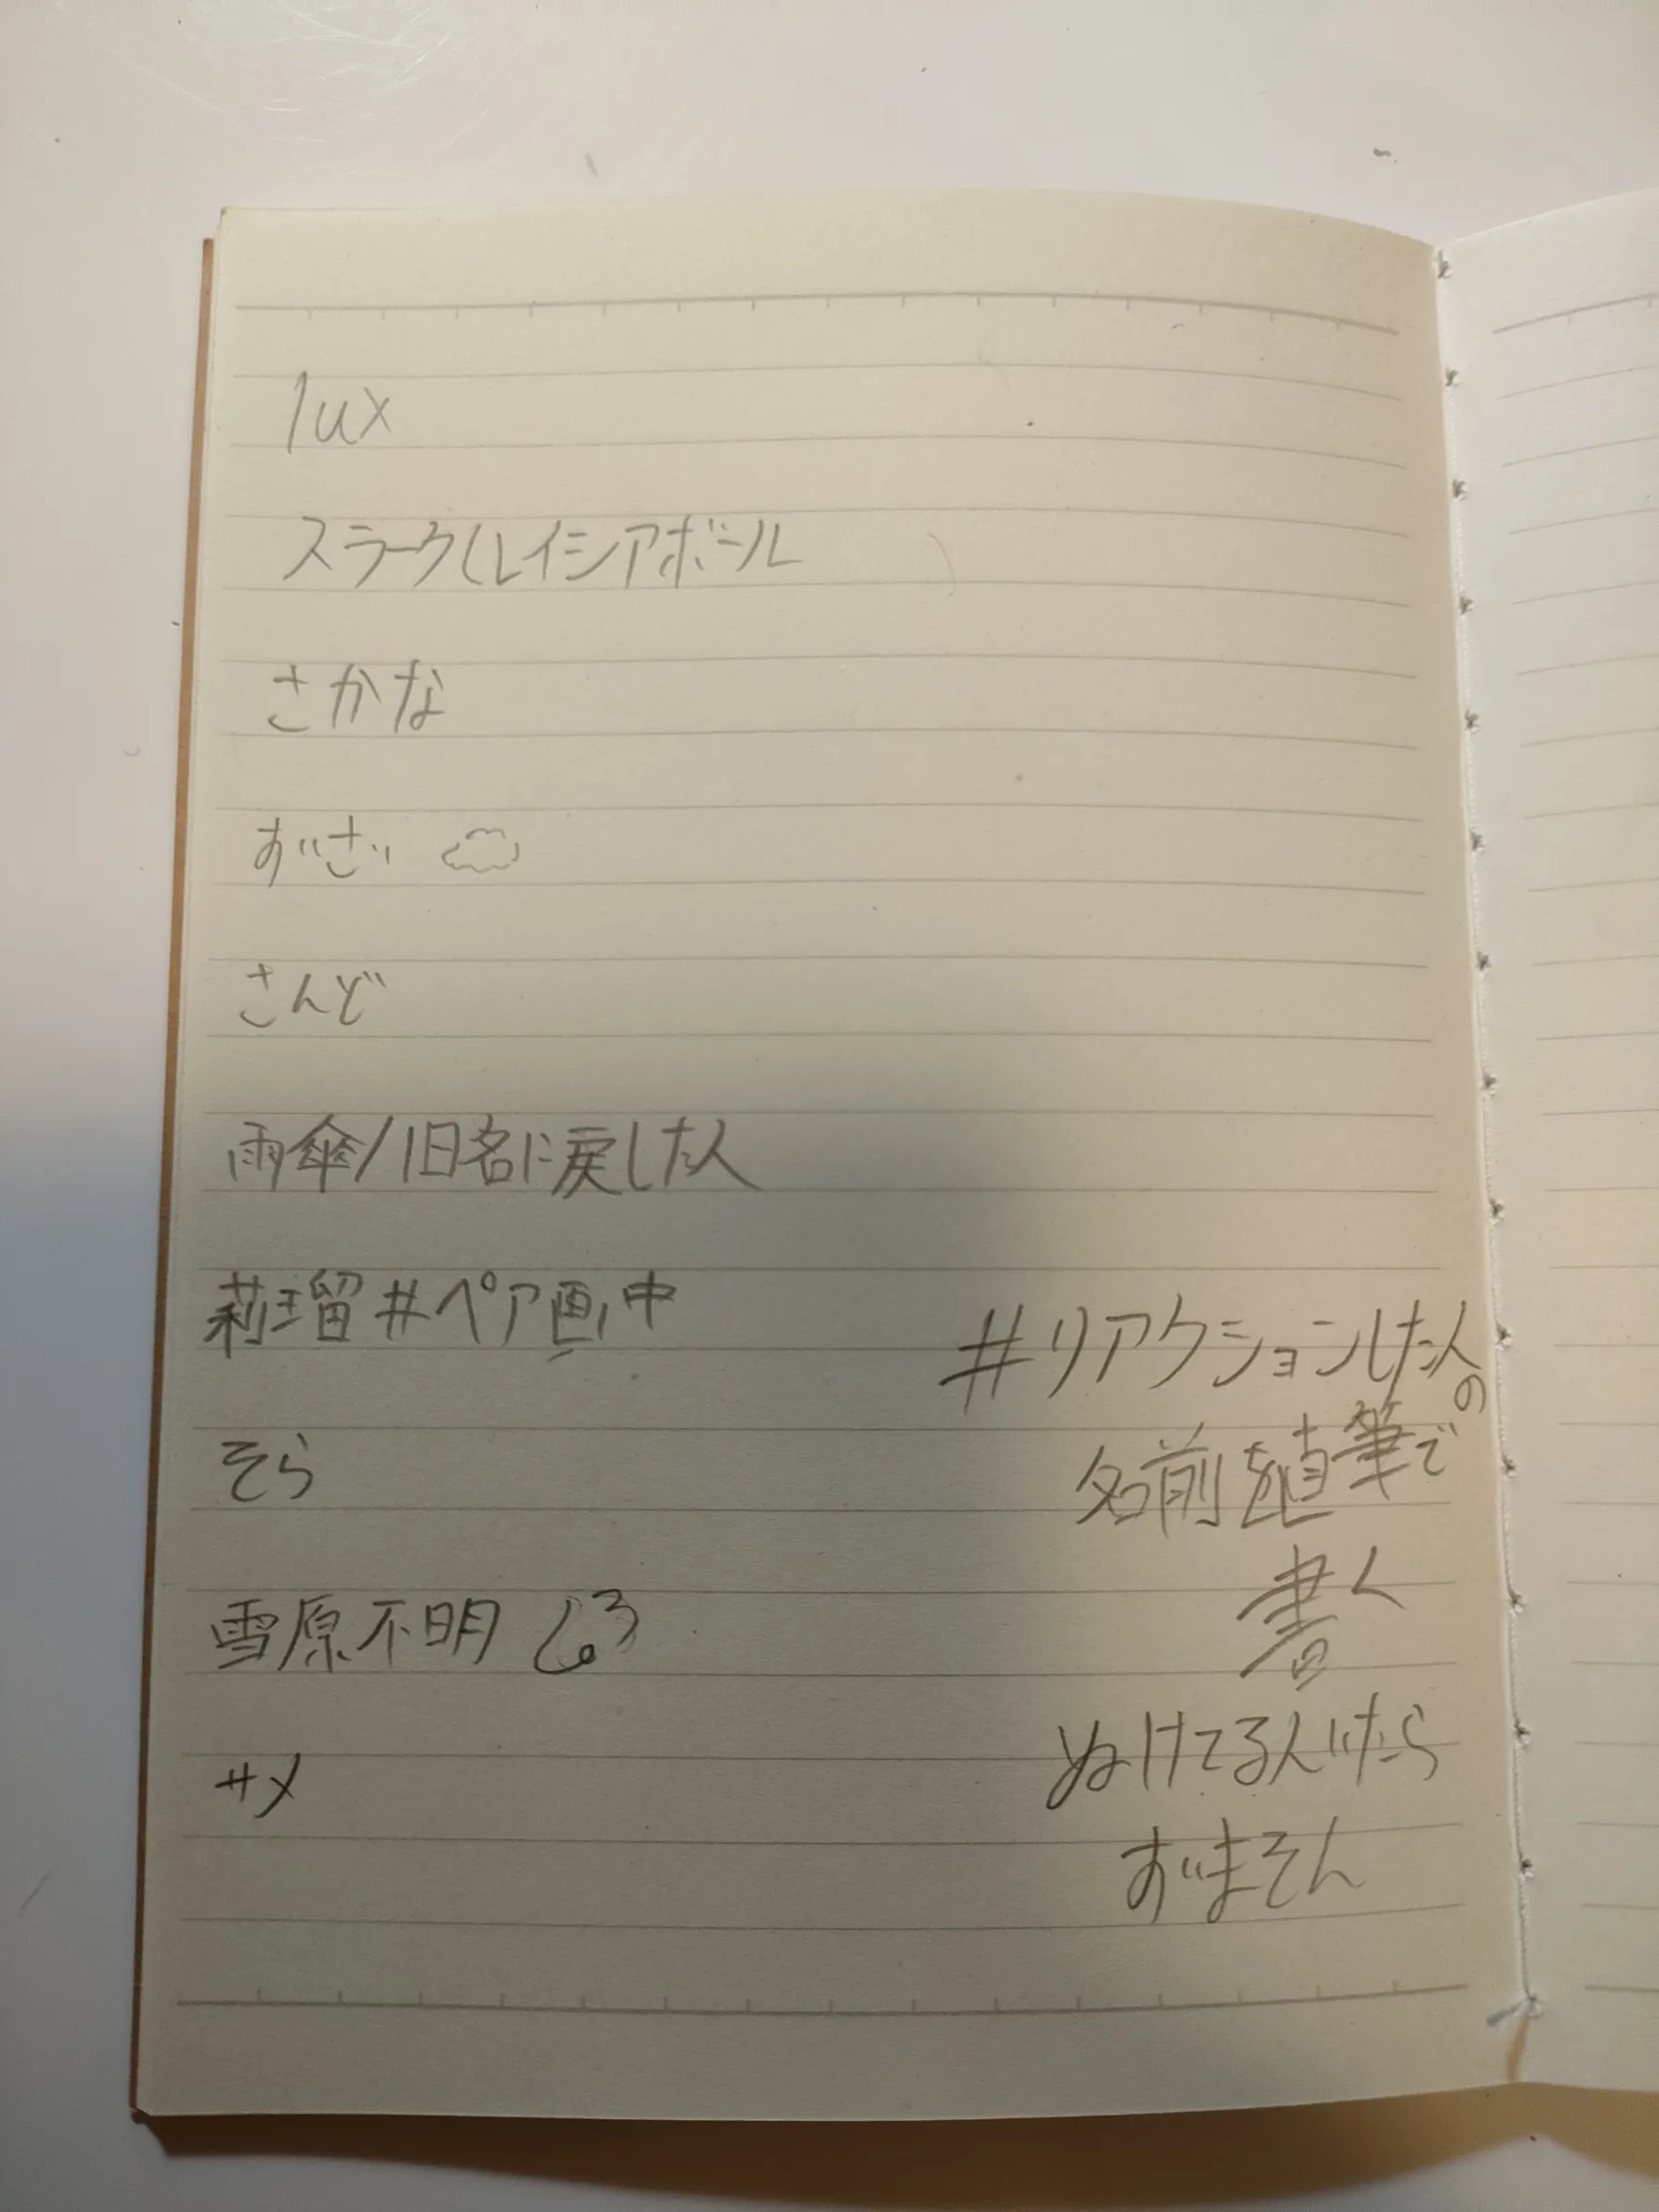 lux
スラーク(レイシアボール
さかな
すいさい
さんど
雨傘/旧名に戻した人
莉瑠#ペア画中
そら
雪原不明
サメ
#リアクションした人の
名前を直筆で
書く
ぬけてる人いたら
すいません